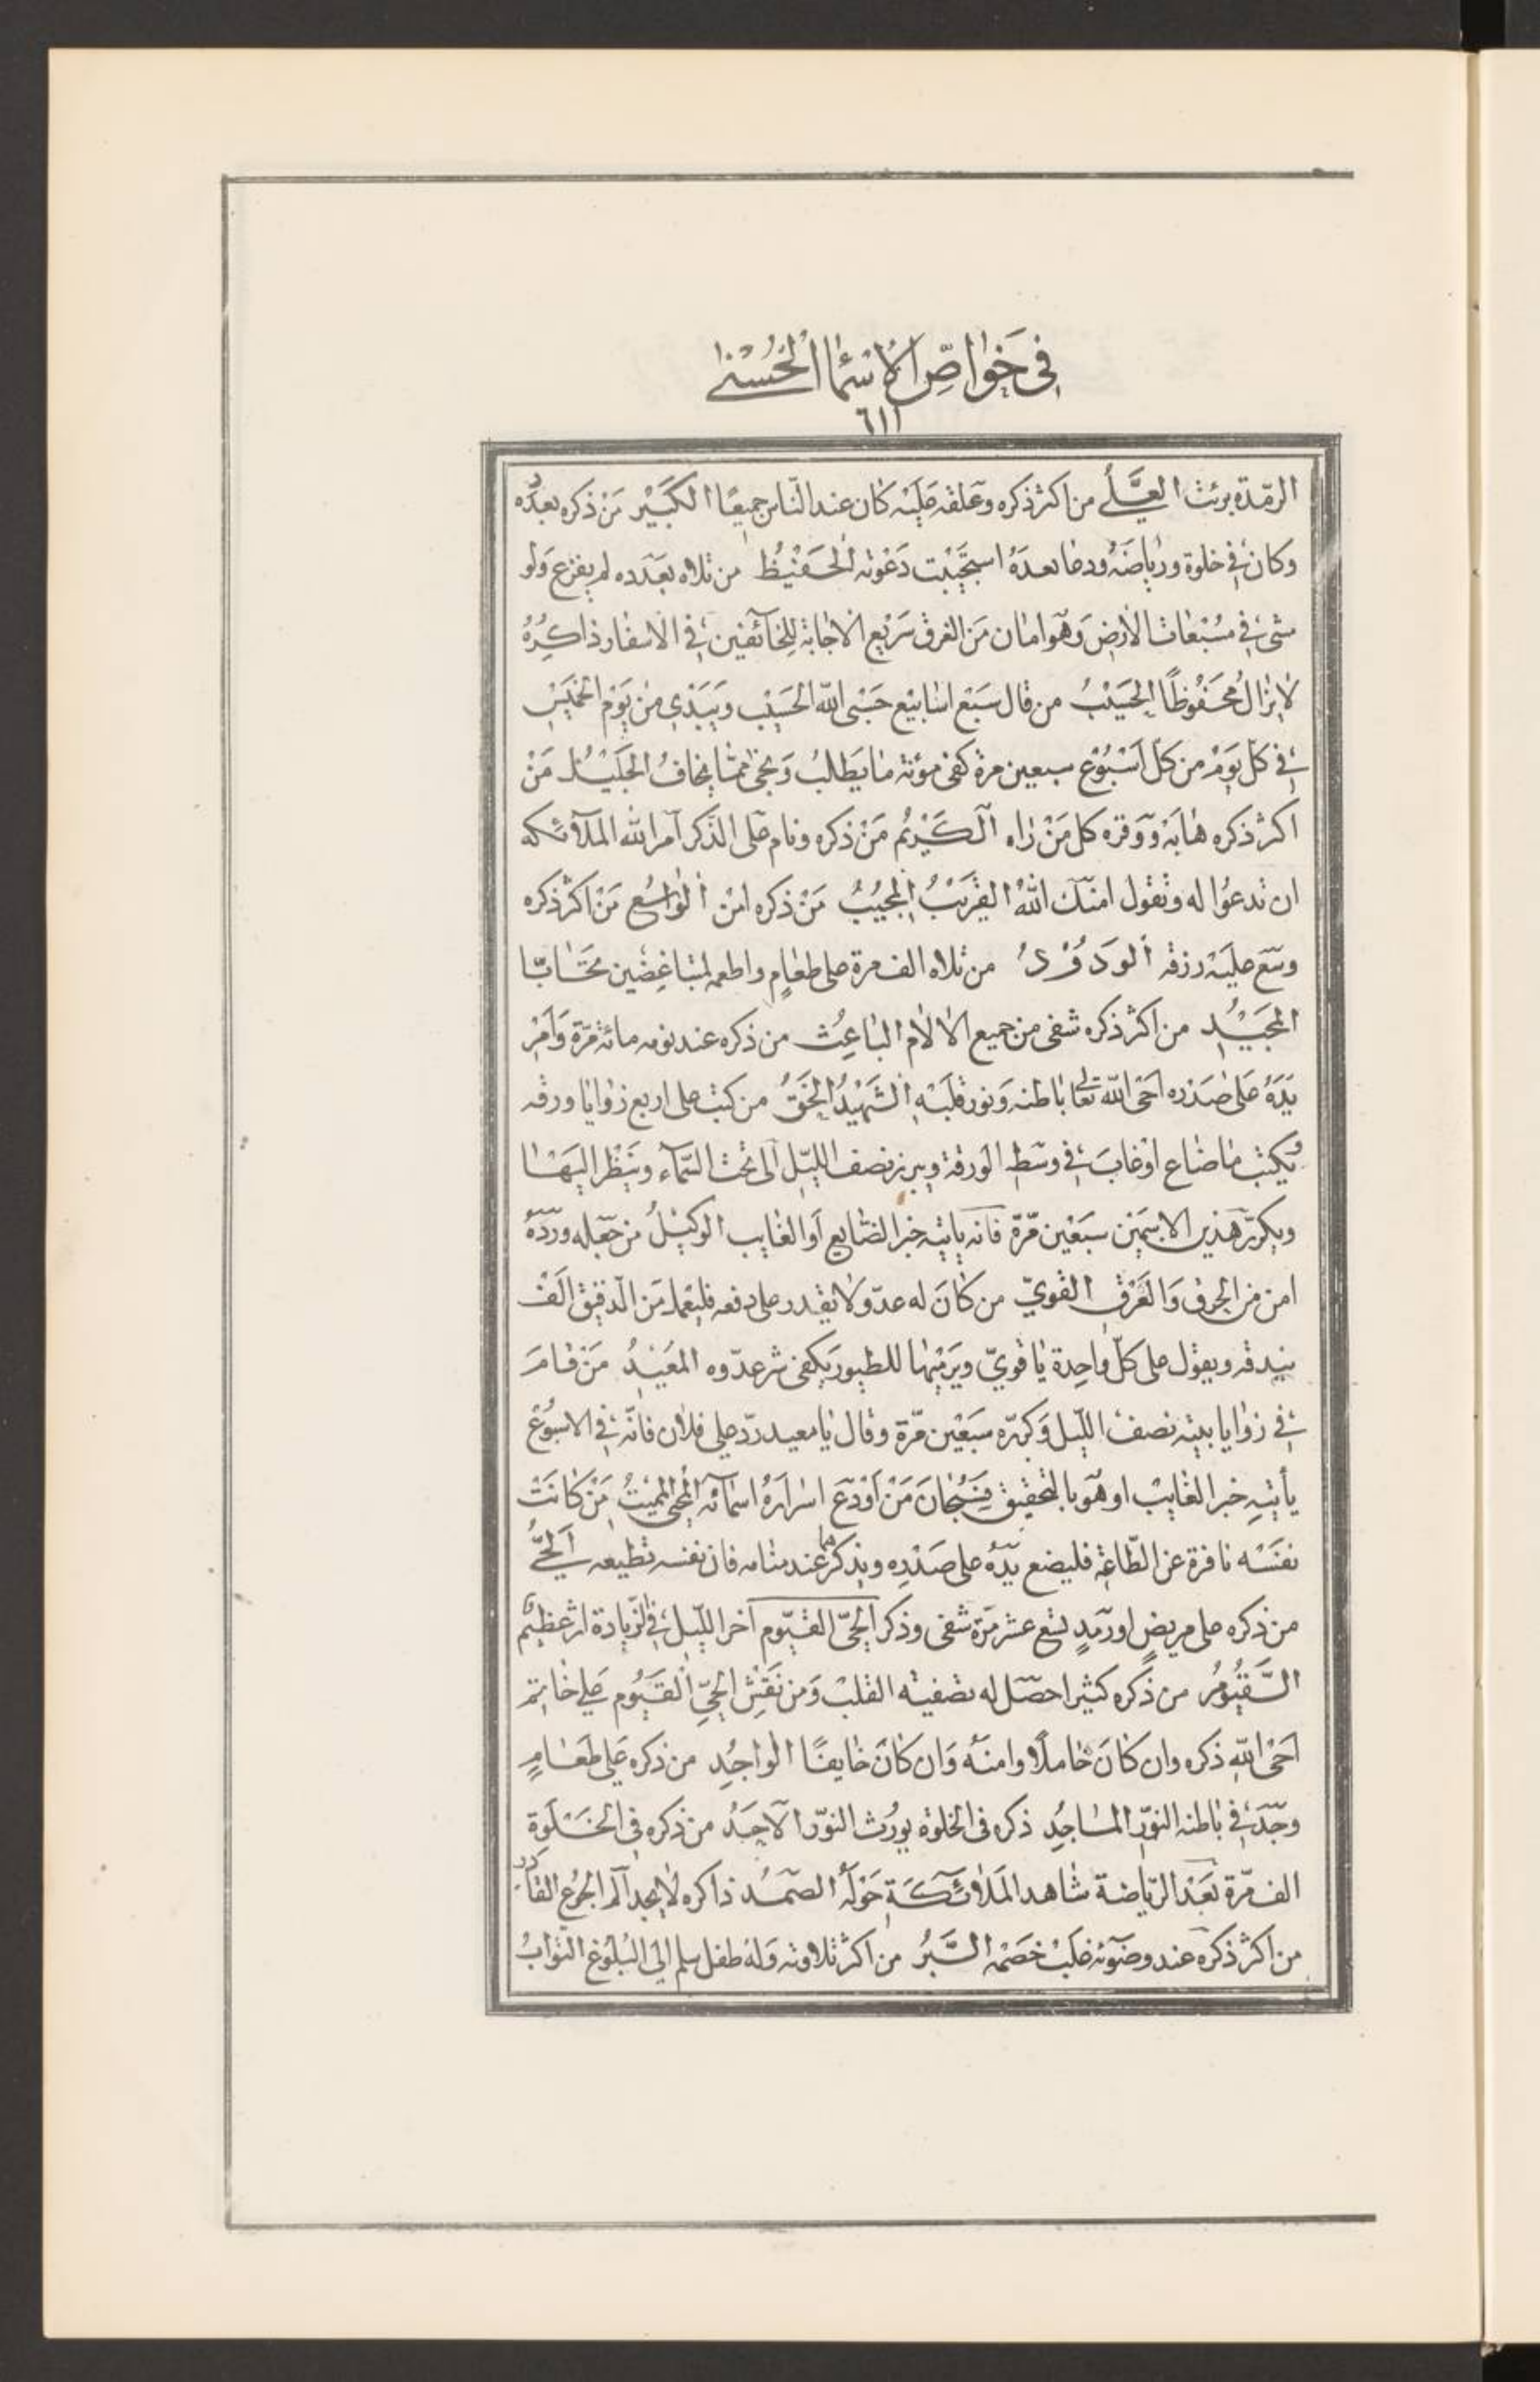 في خواصّ الاسماء الحُسنى
٦١١
الرمدة برئت العَلِيّ من اكثر ذكره وعلقه عليه كان عند الناس جميعًا الكَبيْر مَنْ ذكره بعدده
وكان في خلوة ورياضة ودعا بعدهُ استجيبت دَعْوته الحَفيْظ من تلاه بعدده لم يفزع وَلو
مشى في مسْبعات الأرض وَهو امان مَن الغرق سَريع الاجابة للخآئفين في الاسفار ذاكِرُهُ
لا يزالُ مُحَفُوظًا الحَسيْبُ من قال سَبْع اسَابيْع حَسْبي الله الحَسيْب وَيَبْتدي من يَوْم الخميْسِ
في كلّ يَوْم من كلّ اسْبُوْع سبعين مرة كفى مؤنة ما يَطلبُ وَنجى ممّا يخافُ الجليْل مَنْ
اكثر ذكره هابَهُ ووَقره كل مَنْ رَاه الكَريْمُ مَنْ ذكره ونام على الذّكر آمر الله المَلآئكه
ان تدعُوا له وتقول امنّك اللهُ القريْبُ المُجيْبُ مَنْ ذكره امن الوَاسُع مَنْ اكثر ذكره
وسّع عليَه رزقه الوَدُوْدُ من تلاه الف مرة على طعَامٍ واطعمه لمتباغِضين تحَابّا
المَجيْدِ من اكثر ذكره شفى من جميع الالام الباعِثُ من ذكره عند نومه مائة مرّة وَامَرّ
يَدَهُ عَلى صَدْره احَيى الله تعالى باطنه وَنور قلبَهُ الشَهيْدُ الحَقُّ من كتب على اربع زوايا ورقه
وُيكتب ما ضاع اوْ غابَ في وسَطِ الورقة ويبرز نصف الليْل الى تحت السّمآء وينظر اليهَا
ويكرّر هَذين الاسمَين سَبعْين مرّة فانه ياتيه خبر الضّايع اَو الغايب الوكيْلُ من جَعله وِردَهُ
امن من الحرق وَالغَرْقِ القويّ من كانَ له عدّو لا يقدر على دفعه فليعمل مَن الدقيق الَف
بندقه ويقول على كلّ واحِدة يا قويّ ويَرميْها للطيور يكفى شر عدّوه المعُيْدُ مَنْ قامَ
في زوايا بيته نصف اللّيل وَكرّره سَبْعين مرّة وقال يا معيد ردّ على فلان فانّه في الاسبُوْع
يأتيهِ خبر الغايبْ او هَو بالتحقيق فسُبْحانَ مَنْ اوْدعَ اسرارَهُ اسمآئه المُحيى المُميتُ مَنْ كانَتْ
نفسَه نافرة عن الطّاعة فليضع يَدَهُ على صَدْرِه ويذكرهما عند منامه فان نفسه تطيعه الحَيُّ
من ذكره على مريضٍ اورَمَدٍ تسْع عشر مَرّة شفى وذكر الحَيّ القيّوم اخر اللّيل في الزّيادة اثر عظيْم
القَيُّوْمُ من ذكره كثيرا حصَل له تصفيته القلبْ وَمن نقش الحَيّ القَيُّوم عَلى خاتم
احَيى الله ذكره وان كانَ خاملاً وامنَهُ وَان كانَ خايفًا الواجُدِ من ذكره عَلى طعَامٍ
وجَدَ في باطنه النوّر المَاجُدِ ذكره في الخلوة يورُث النوّر الاحَدُ من ذكره في الخَلْوَة
الف مّرة بَعْد الرّياضة شاهد المَلائكَة حَوْلهُ الصّمَدُ ذاكره لا يجد اَلم الجُوع القادر
من اكثر ذكره عند وضوئه غلبْ خصْمْه البَّرُ من اكثر تلاوته وَلهُ طفل سلم الى البُلوْغ التوّابُ